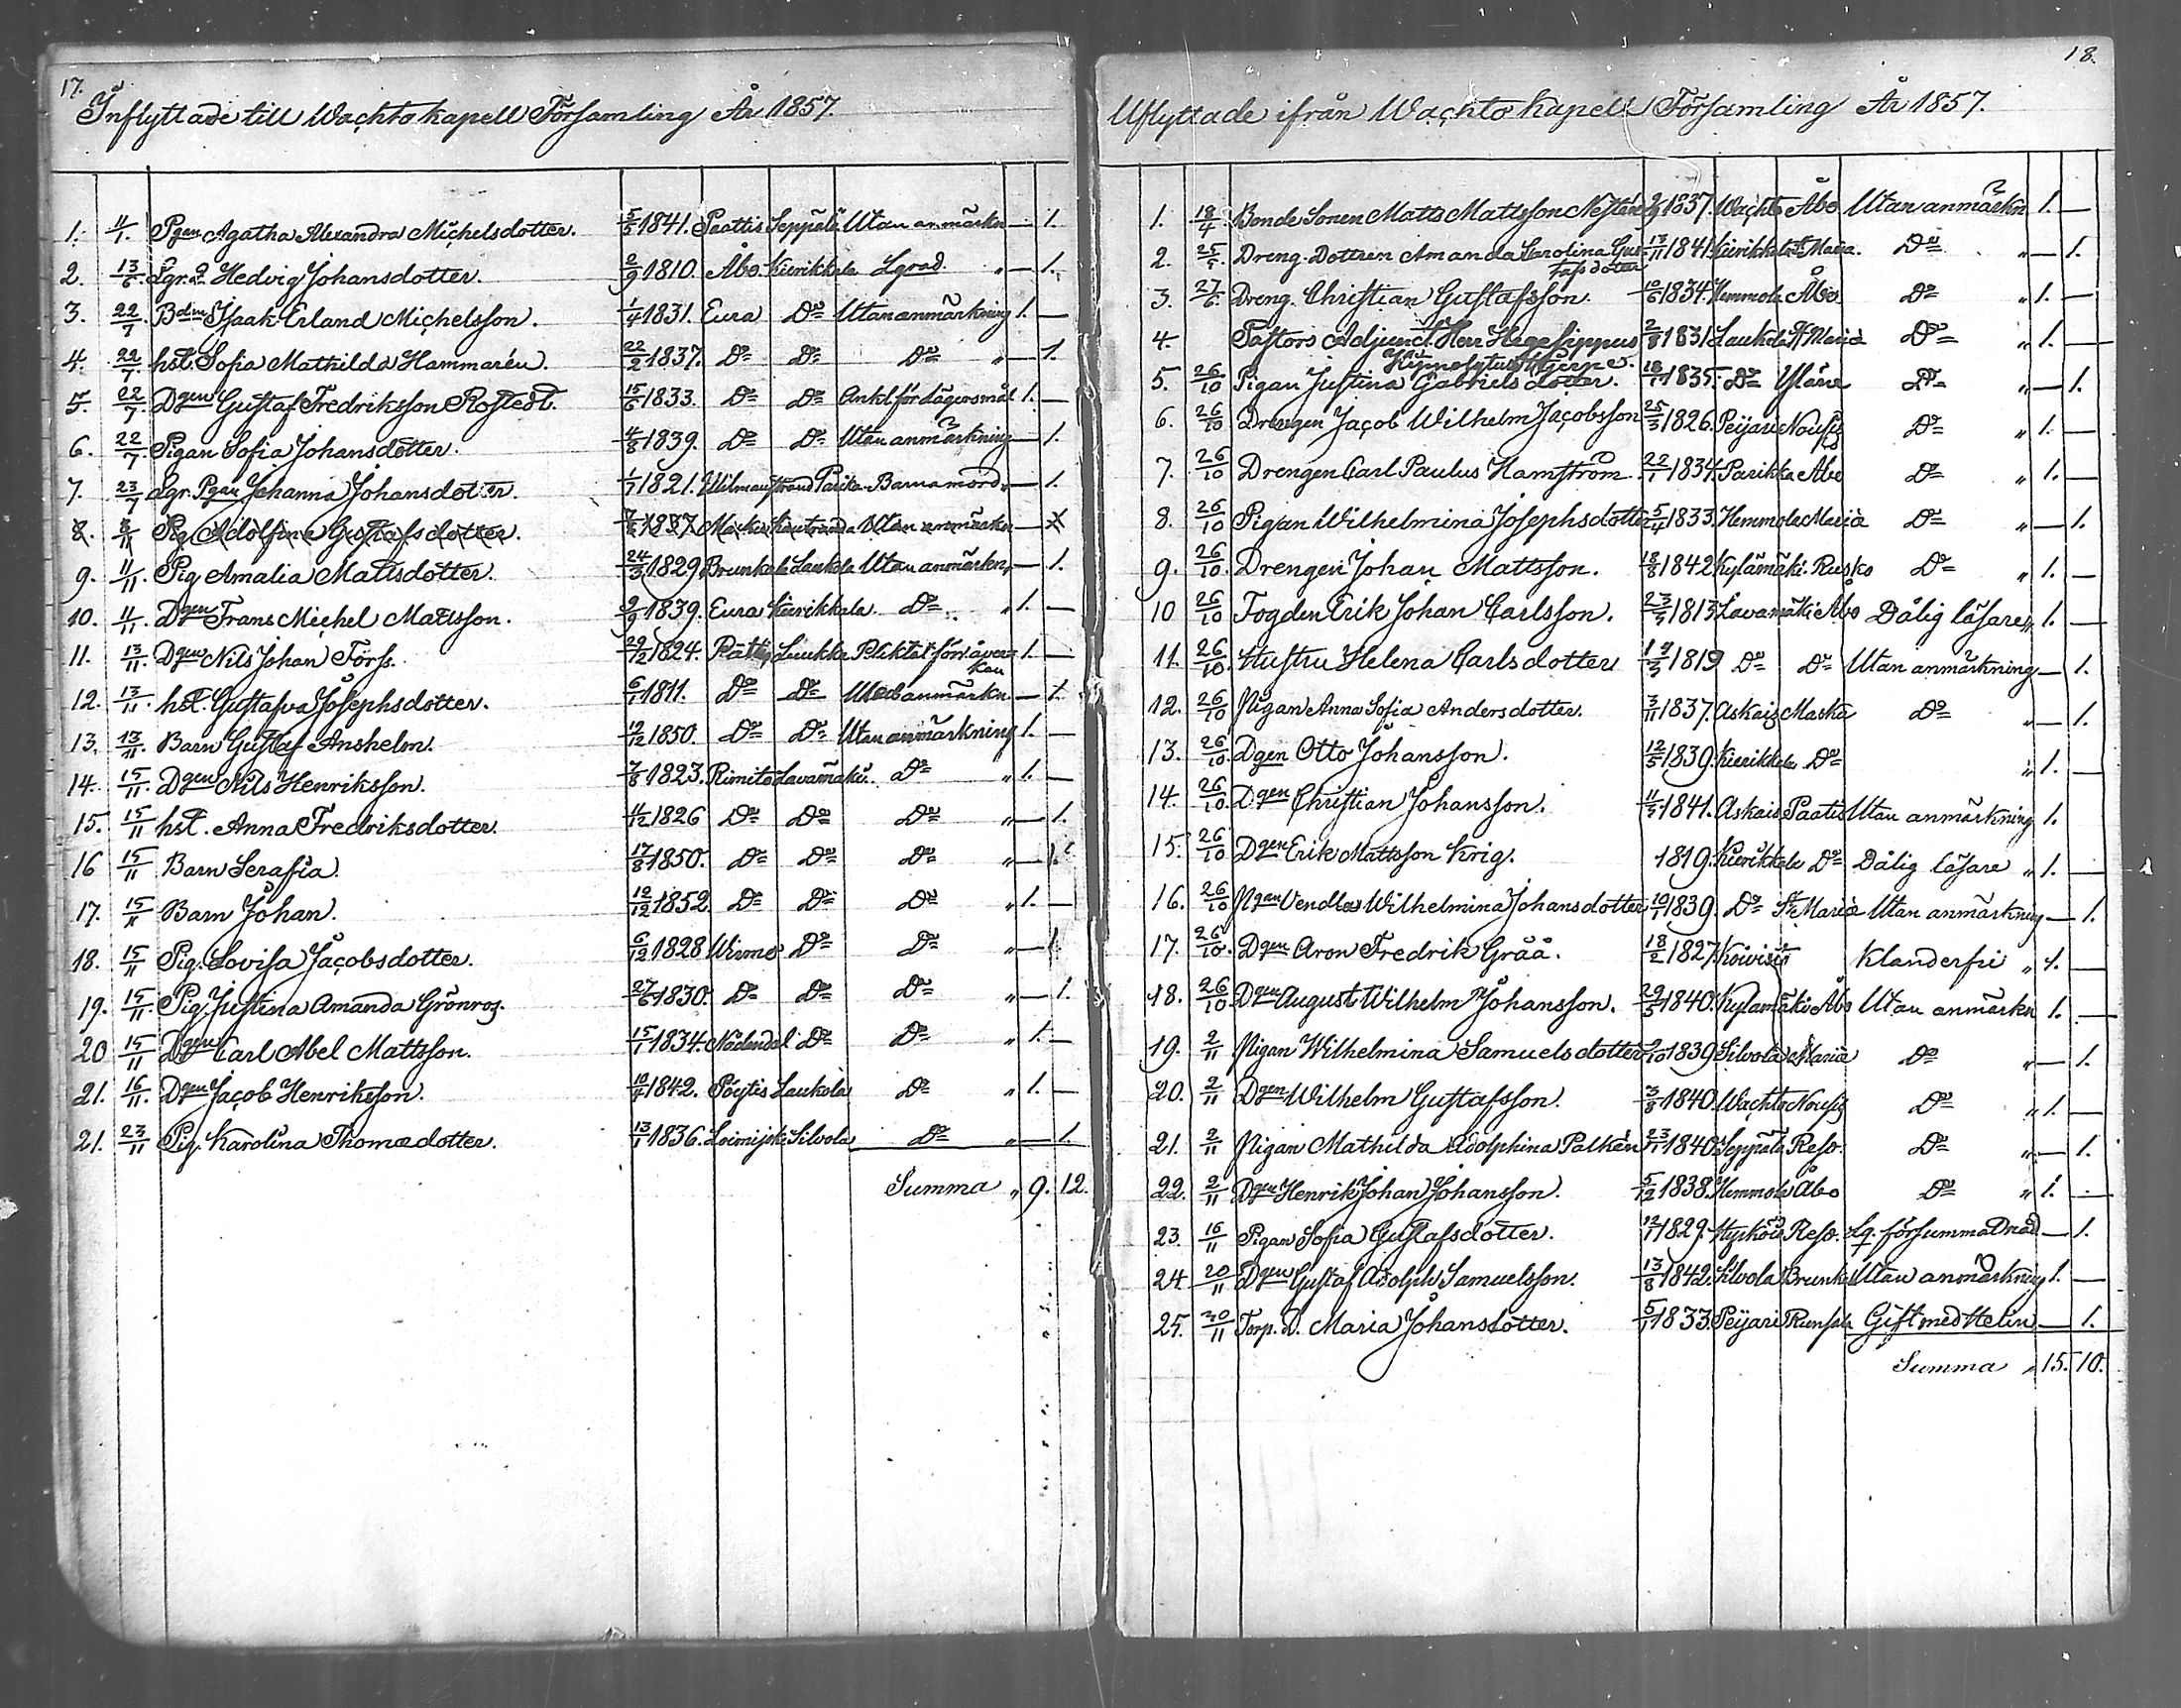 17.
Inflyttade till Wachto kapell Församling År 1857.
1. 11/1. Pgen Agatha Alexandra Michelsdotter. 5/5 1841. Paattis Seppälä Utan anmärkn — 1.
2. 13/6 Hedvig Johansdotter. 2/9 1810. Åbo. Kierikkala " — 1.
3. 22/7. Isaak Erland Michelsson. 1/4 1831. Eura Do Utan anmärkning 1. —
4. 22/7 hst. Sofia Mathilda Hammarén. 22/2 1837. Do Do Do " — 1.
5. 22/7 Dgen Gustaf Fredriksson Rostedt. 15/6 1833. Do Do 1. —
6. 22/7 Pigan Sofia Johansdotter. 4/8 1839. Do Do Utan anmärkning — 1.
7. 23/7 Johanna Johansdotter. 1/7 1821. Wilmanstrand Barnamord — 1.
8. 3/11 Pig. Adolfina Gustafsdotter. 1837. Utan anmärkn — 1.
9. 11/11. Pig Amalia Mattsdotter. 24/3 1829 Brunkala Laukola Utan anmärkn, — 1.
10. 11/11. Dgen Frans Michel Mattsson. 9/9 1839. Eura Kierikkala Do " 1. —
11. 13/11. Dgen Nils Johan Förss. 29/12 1824. 1. —
12. 13/11. hst. Gustafva Josephsdotter. 6/1 1811. Do Do anmärkn. — 1.
13. 13/11. Barn Gustaf Anshelm. 12/12 1850. Do Do Utan anmärkning 1. —
14. 15/11. Dgen Nils Henriksson. 7/8 1823. Rimito Lavamäki. Do " 1. —
15. 15/11 hst. Anna Fredriksdotter. 11/12 1826 Do Do Do " — 1.
16 15/11 Barn Serafia. 17/8 1850. Do Do Do " — 1.
17. 15/11 Barn Johan. 12/12 1852. Do Do Do " 1. —
18. 15/11 Pig. Lovisa Jacobsdotter. 6/12 1828 Wirmo Do Do " — 1.
19. 15/11. Pig. Justina Amanda Grönros. 27/6 1830. Do Do Do " — 1.
20 15/11 Dgen Carl Abel Mattsson. 15/1 1834. Nådendal Do Do " 1. —
21. 16/11. Dgen Jacob Henriksson. 1842. Pöytis Laukola Do " 1. —
21. 23/11 Pig. Karolina Thomædotter. 13/1 1836. Loimijoki Silvola Do " — 1.
Summa " 9. 12.
18.
Utflyttade ifrån Wachto kapell Församling År 1857.
1. 18/4. Bonde Sonen Matts Mattsson 1837. Wachto Åbo Utan anmärkn 1. —
2. 25/5. Dreng. Dottren Amanda Carolina Gus- 13/11 1841. Kierikkala St Maria. Do " — 1.
tafsdotter
3. 27/6. Dreng. Christian Gustafsson. 10/6 1834. Hemmola Åbo. Do " 1. —
4. Pastors Adjunct Herr Hegesippus 2/8 1831 Laukola St Maria Do " 1. —
5. 26/10 Pigan Justina Gabrielsdotter. 18/1 1835. Do Yläne Do " — 1.
6. 26/10 Drengen Jacob Wilhelm Jacobsson 25/3 1826. Peijari Nousis Do " 1. —
7. 26/10 Drengen Carl Paulus Hamström 22/1 1834. Parikka Åbo Do " 1. —
8. 26/10 Pigan Wilhelmina Josephsdotter 5/4 1833. Hemmola Maria Do " — 1.
9. 26/10. Drengen Johan Mattsson. 18/8 1842 Kylämäki. Rusko Do " 1. —
10 26/10 Fogden Erik Johan Carlsson. 23/5 1813 Lavamäki Åbo Dålig läsare " 1. —
11. 26/10. Hustru Helena Carlsdotter 1819 Do Do Utan anmärkning — 1.
12. 26/10 Pigan Anna Sofia Andersdotter. 3/11 1837. Askais Masku Do " — 1.
13. 26/10. Dgen Otto Johansson. 12/5 1839. Kierikkala Do " 1. —
14. 26/10. Dgen Christian Johansson. 11/5 1841. Askais Paatis Utan anmärkning 1.
15. 26/10 Dgen Erik Mattsson Krig. 1819. Kierikkala Do Dålig läsare " 1. —
16. 26/10 Pgen Vendla Wilhelmina Johansdotter 10/1 1839. Do St Maria Utan anmärkning — 1.
17. 26/10. Dgen Aron Fredrik Gråå. 18/2 1827. Koivisto Klanderfri " 1. —
18. 26/10 Dgen August Wilhelm Johansson. 29/5 1840. Kylämäki Åbo Utan anmärkn 1. —
19. 2/11 Pigan Wilhelmina Samuelsdotter 2/10 1839 Silvola Maria Do " — 1.
20. 2/11 Dgen Wilhelm Gustafsson. 3/8 1840. Wachto Nousis Do " 1. —
21. 2/11 Pigan Mathilda Adolphina Palkén 23/1 1840. Seppälä Reso. Do " — 1.
22. 2/11 Dgen Henrik Johan Johansson. 5/12 1838. Hemmola Åbo Do " 1. —
23. 16/11 Pigan Sofia Gustafsdotter. 12/1 1829. Reso. — 1.
24 20/11 Dgen Gustaf Adolph Samuelsson. 13/8 1842. Silvola Brunkala Utan anmärkning 1. —
25. 30/11 Torp. d. Maria Johansdotter. 5/1 1833. Peijari Runsala Gift med Helin — 1.
Summa " 15. 10.